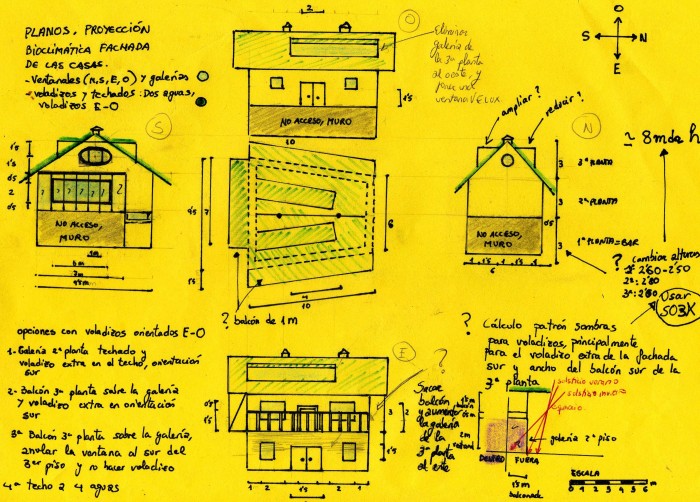 PLANOS, PROYECCIÓN
BIOCLIMÁTICA FACHADA
DE LAS CASAS.
-Ventanales (N,S,E,O) y galerías
-voladizos y techados: Dos aguas,
voladizos E-O
O
2
Eliminar
galería de
la 3ª planta
al oeste, y
poner una
ventana VELUX
1'5
NO ACCESO, MURO
10
O
S
N
E
S
1'5
1'5
0'5
2
0'5
2
NO ACCESO,
MURO
1m
5m
7m
9'5m
9'5
7
6
1'5
4
10
? balcón de 1m
ampliar?
reducir?
N
≃ 8m de h
3 3ª PLANTA
3 2ª PLANTA
0'5
3 1ª PLANTA=BAR
NO ACCESO,
MURO
1'5
1'5
6
? cambiar alturas
1ª: 2'60-2'50
2ª: 2'80
3ª: 2'80
Usar
SO3X
opciones con voladizos orientados E-O
1- Galería 2ª planta techado y
voladizo extra en el techo, orientación
sur
2- Balcón 3ª planta sobre la galería
y voladizo extra en orientación
sur
3ª Balcón 3ª planta sobre la galería,
anular la ventana al sur del
3er piso y no hacer voladizo
4ª techo a 4 aguas
2
E
?
0'5
1'5
3
2
1
2
2
1
Sacar
balcón
y aumentar
la galería
de la
3ª planta
al este
? Cálculo patrón sombras
para voladizos, principalmente
para el voladizo extra de la fachada
sur y ancho del balcón sur de la
3ª planta
solsticio verano
solsticio invierno
equinoccio
2m
galería 2º piso
DENTRO
FUERA
1'5m
ESCALA
0 1 2 3 4 5 6m